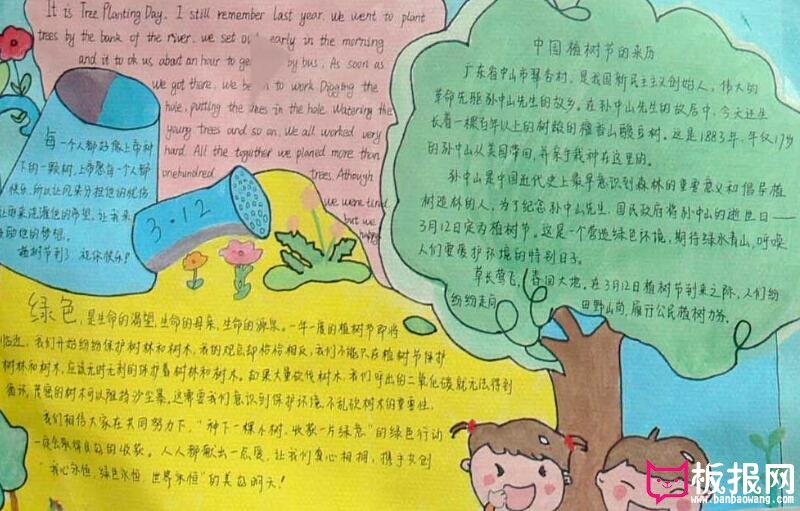 It is Tree Planting Day. I still remember last year, we went to plant
trees by the bank of the river. we set out early in the morning
and it to ok us about an hour to ge by bus. As soon as
we got there, we be n to work Digging the
hole, putting the trees in the hole. Watering the
young trees and so on. We all worked very
hard. All the together we planed more than
onehundred trees. Although
we were tired
but we
happy
每一个人都好像上帝树
下的一颗树,上帝愿每一个人都
快乐,所以让风来分担他的忧伤
让雨来浇灌他的希望,让我来
他的梦想。
植树节到了,祝你快乐!
3·12
中国植树节的来历
广东省中山市翠亨村,是我国新民主主义创始人,伟大的
革命先驱孙中山先生的故乡。在孙中山先生的故居中,今天还生
长着一棵百年以上的树龄的檀香山酸豆树。这是1883年,年仅17岁
的孙中山从美国带回,并亲手栽种在这里的。
孙中山是中国近代史上最早意识到森林的重要意义和倡导植
树造林的人,为了纪念孙中山先生,国民政府将孙中山的逝世日——
3月12日定为植树节。这是一个营造绿色环境,期待绿水青山,呼唤
人们要爱护环境的特别日子。
草长莺飞,春回大地。在3月12日植树节到来之际,人们纷
纷纷走向 田野山岗,履行公民植树义务。
绿色,是生命的渴望,生命的母亲,生命的源泉。一年一度的植树节即将
临近,我们开始纷纷保护树林和树木,我的观点却恰恰相反,我们不能只在植树节保护
树林和树木,应该无时无刻的保护着树林和树木。如果大量砍伐树木,我们呼出的二氧化碳就无法得到
循环,茂密的树木可以抵挡沙尘暴,这需要我们意识到保护环境,不乱砍树木的重要性。
我们相信大家在共同努力下,“种下一棵小树,收获一片绿意”的绿色行动
一定会取得良好的收获。人人都献出一点爱,让我们真心相拥,携手共创
“我心永恒,绿色永恒,世界永恒”的美好明天!
板报网
www.banbaowang.com